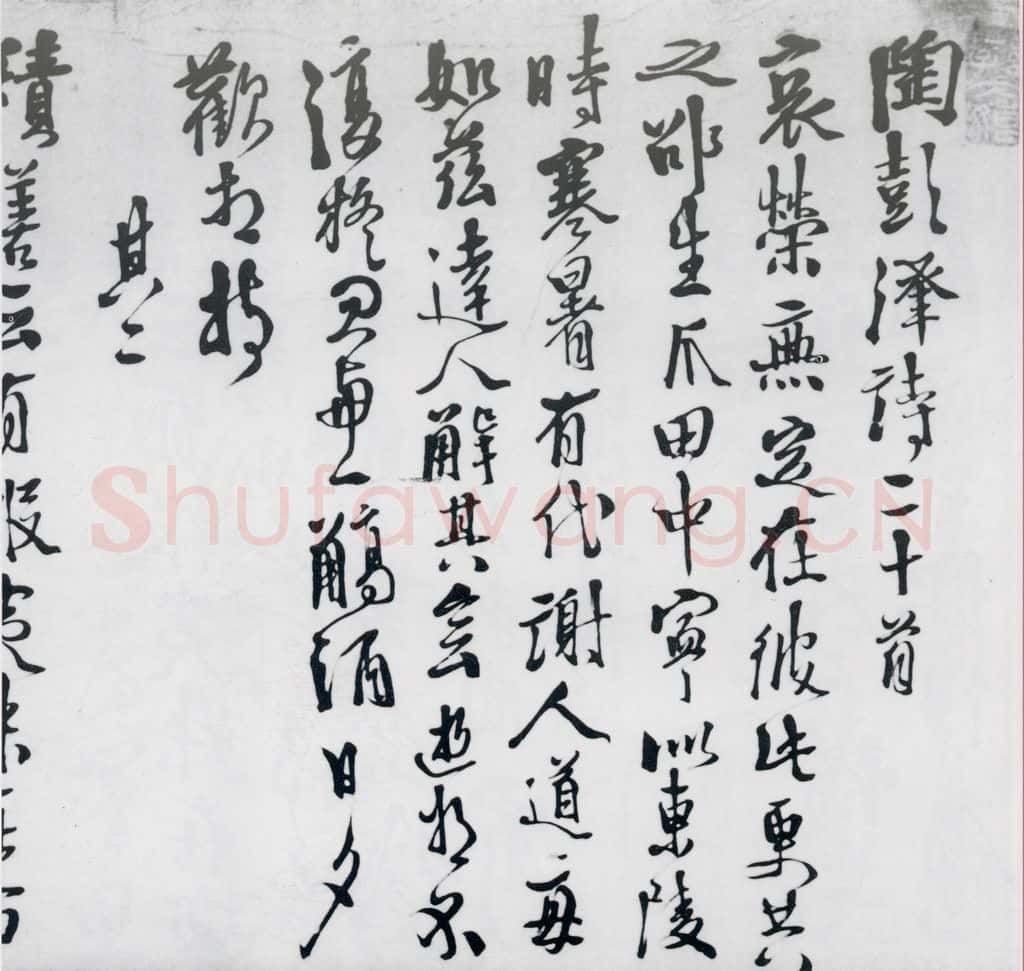 陶彭澤詩二十首
衰榮無定在彼此更共
之邵生瓜田中寧似東陵
時寒暑有代謝人道每
如茲達人解其會逝將不
復疑忽與一觴酒日夕
歡相持
其二
積善云有報夷叔在西
Shufawang.CN